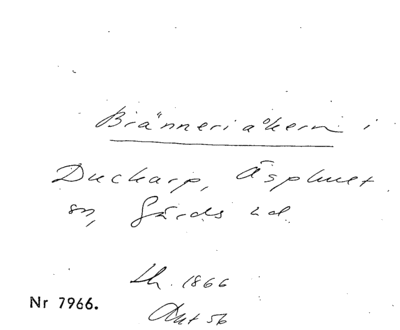 Bränneriåkern i
Duckarp, Äsphult
sn, Gärds hd.
Lh. 1866
Nr 7966.
Dat 56